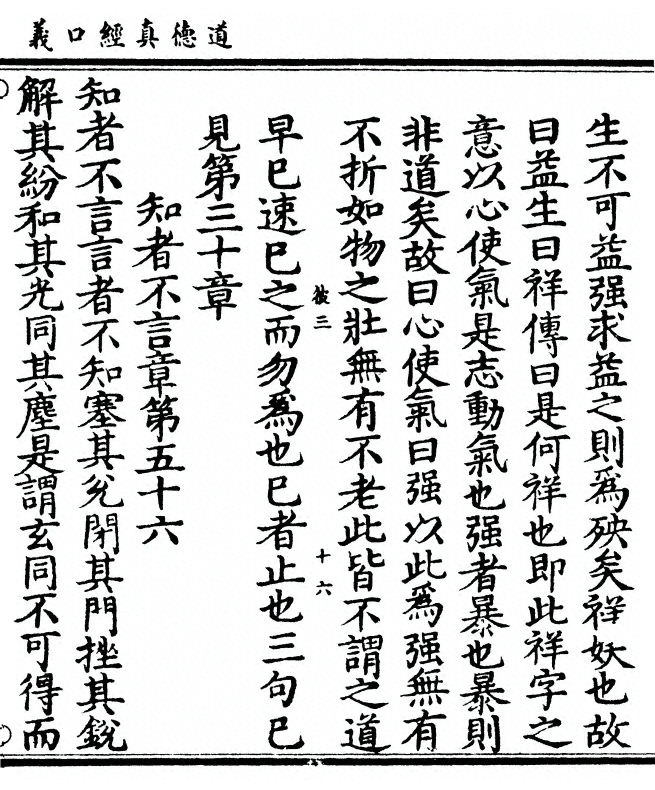 道德真經口義
生不可益强求益之則爲殃矣祥妖也故
曰益生曰祥傳曰是何祥也即此祥字之
意以心使氣是志動氣也强者暴也暴則
非道矣故曰心使氣曰强以此爲强無有
不折如物之壯無有不老此皆不謂之道
彼三
十六
早已速已之而勿爲也已者止也三句已
見第三十章
知者不言章第五十六
知者不言言者不知塞其兌閉其門挫其銳
解其紛和其光同其塵是謂玄同不可得而